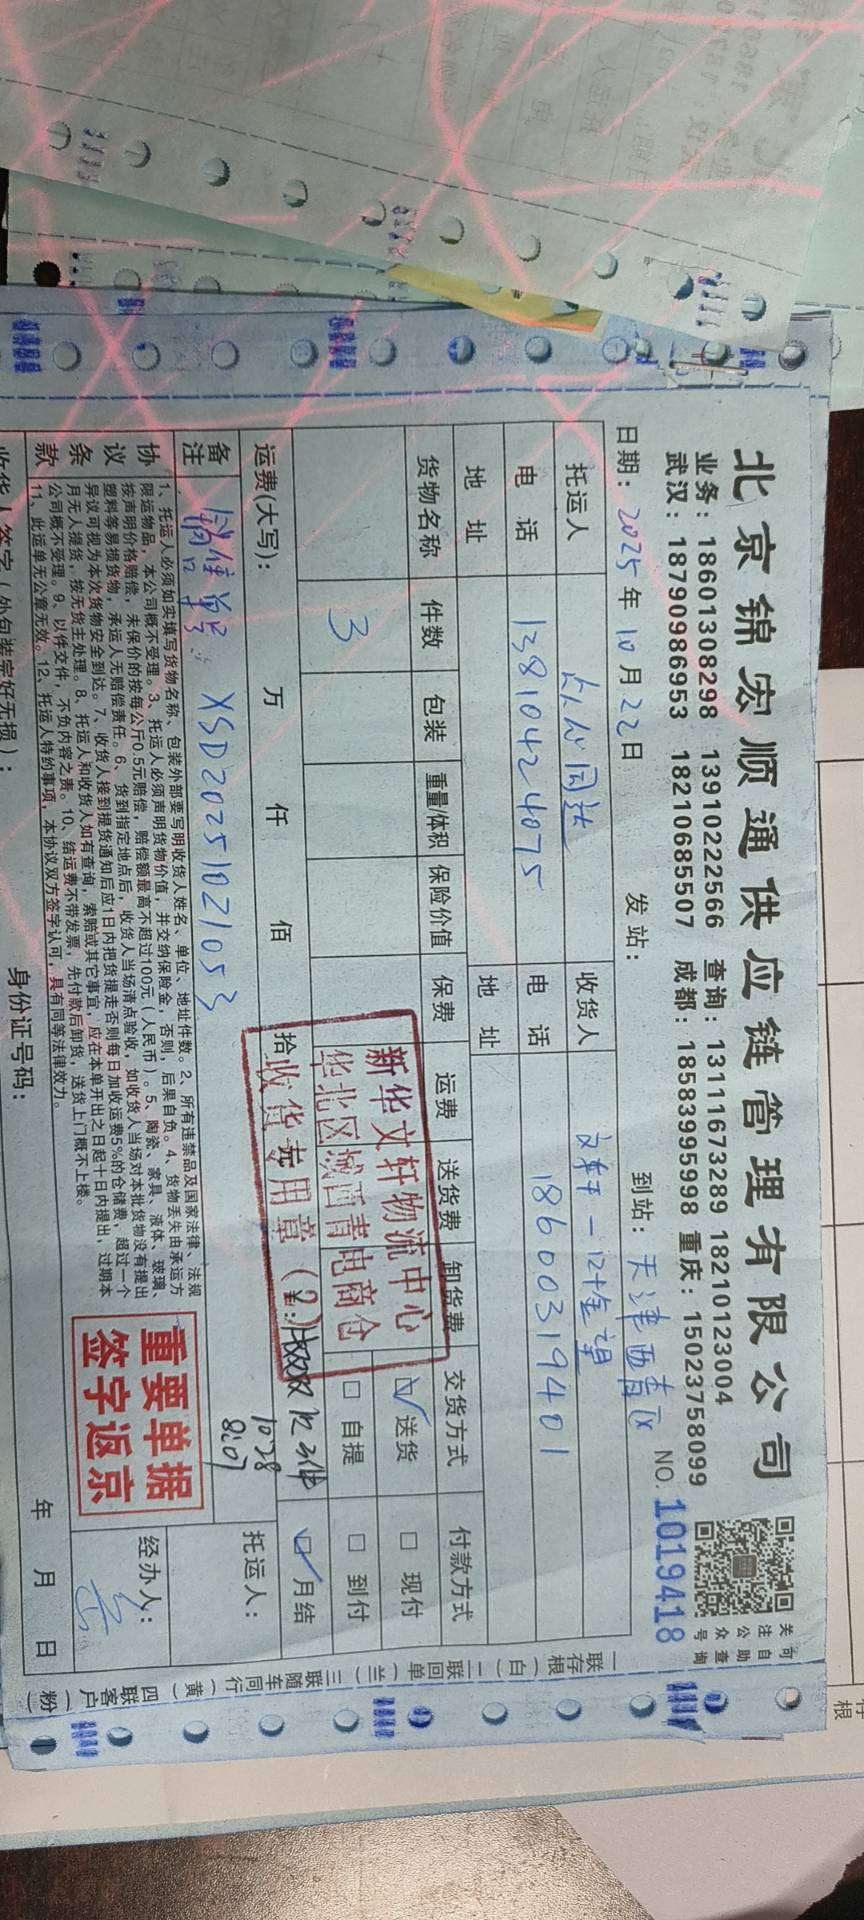 北京锦宏顺通供应链管理有限公司
业务：18601308298 13910222566 查询：13111673289 18210123004
武汉：18790986953 18210685507 成都：18583995998 重庆：15023758099
关注公众号
可自助查询
日期：2025年10月22日 发站： 到站：天津西青区 NO.1019418
托运人 收货人 文轩
电话 13810424075 电话 18600319401
地址 地址
货物名称 件数 包装 重量/体积 保险价值 保费 运费 送货费 卸货费 交货方式 付款方式
3 ☑送货 □现付
□自提 □到付
☑月结
运费(大写)： 万 仟 佰 拾 元 (¥:
托运人：
新华文轩物流中心
华北区域西青电商仓
收货专用章（2）
备注 销售单号：XSD20251021053
1028
经办人：
协议条款
1、托运人必须如实填写货物名称、包装外部要写明收货人姓名、单位、地址件数。2、所有违禁品及国家法律、法规
限运物品，本公司概不受理。3、托运人必须声明货物价值，并交纳保险金，否则，后果自负。4、货物丢失由承运方
按声明价格赔偿，未保价的按每公斤0.5元赔偿，赔偿额最高不超过100元（人民币）。5、陶瓷、家具、液体、玻璃、
塑料等易损货物，承运人无赔偿责任。6、货到指定地点后，收货人当场清点验收，如收货人当场对本批货物没有提出
异议可视为本次货物安全到达。7、收货人接到提货通知后应1日内把货提走否则每日加收运费5%的仓储费，超过一个
月无人提货，按无货主处理。8、托运人和收货人如有查询，索赔或其它事宜，应在本单开出之日起十日内提出，过期本
公司概不受理。9、以件交件，不负内容之责。10、结运费不带发票，先付款后卸货，送货上门概不上楼。
11、此运单无公章无效。12、托运人特约事项，本协议双方签字认可，具有同等法律效力。
重要单据
签字返京
收货人签字（外包装完好无损）： 身份证号码： 年 月 日
一联存根（白）二联回单（兰）三联随车同行（黄）四联客户（粉